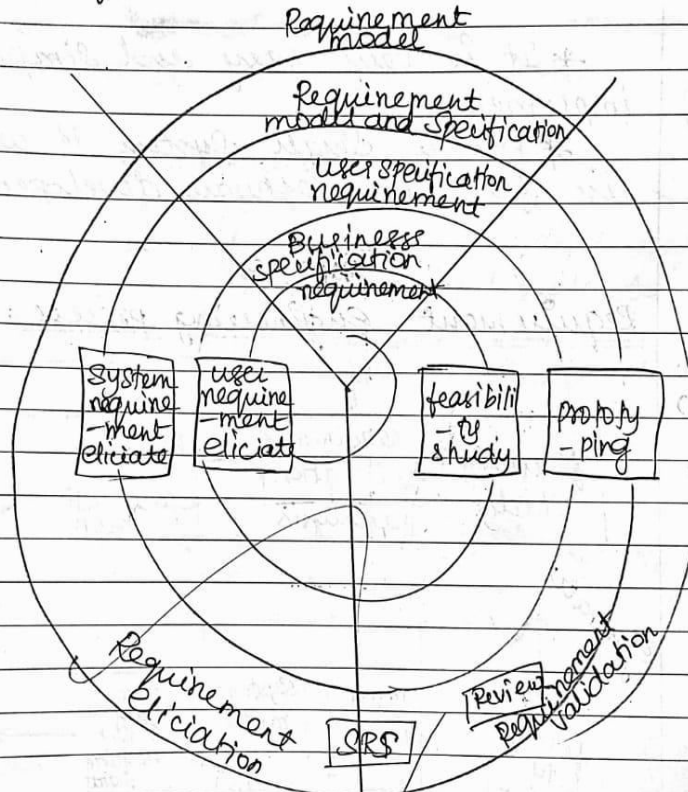 Requinement
model
Requinement
model and specification
user specification
nequinement
Businesss
specification
nequinement
System
nequine
-ment
eliciate
user
nequine
-ment
eliciate
feasibili
-ty
study
prototy
-ping
Requinement
eliciation
SRS
Review
Requinement
validation